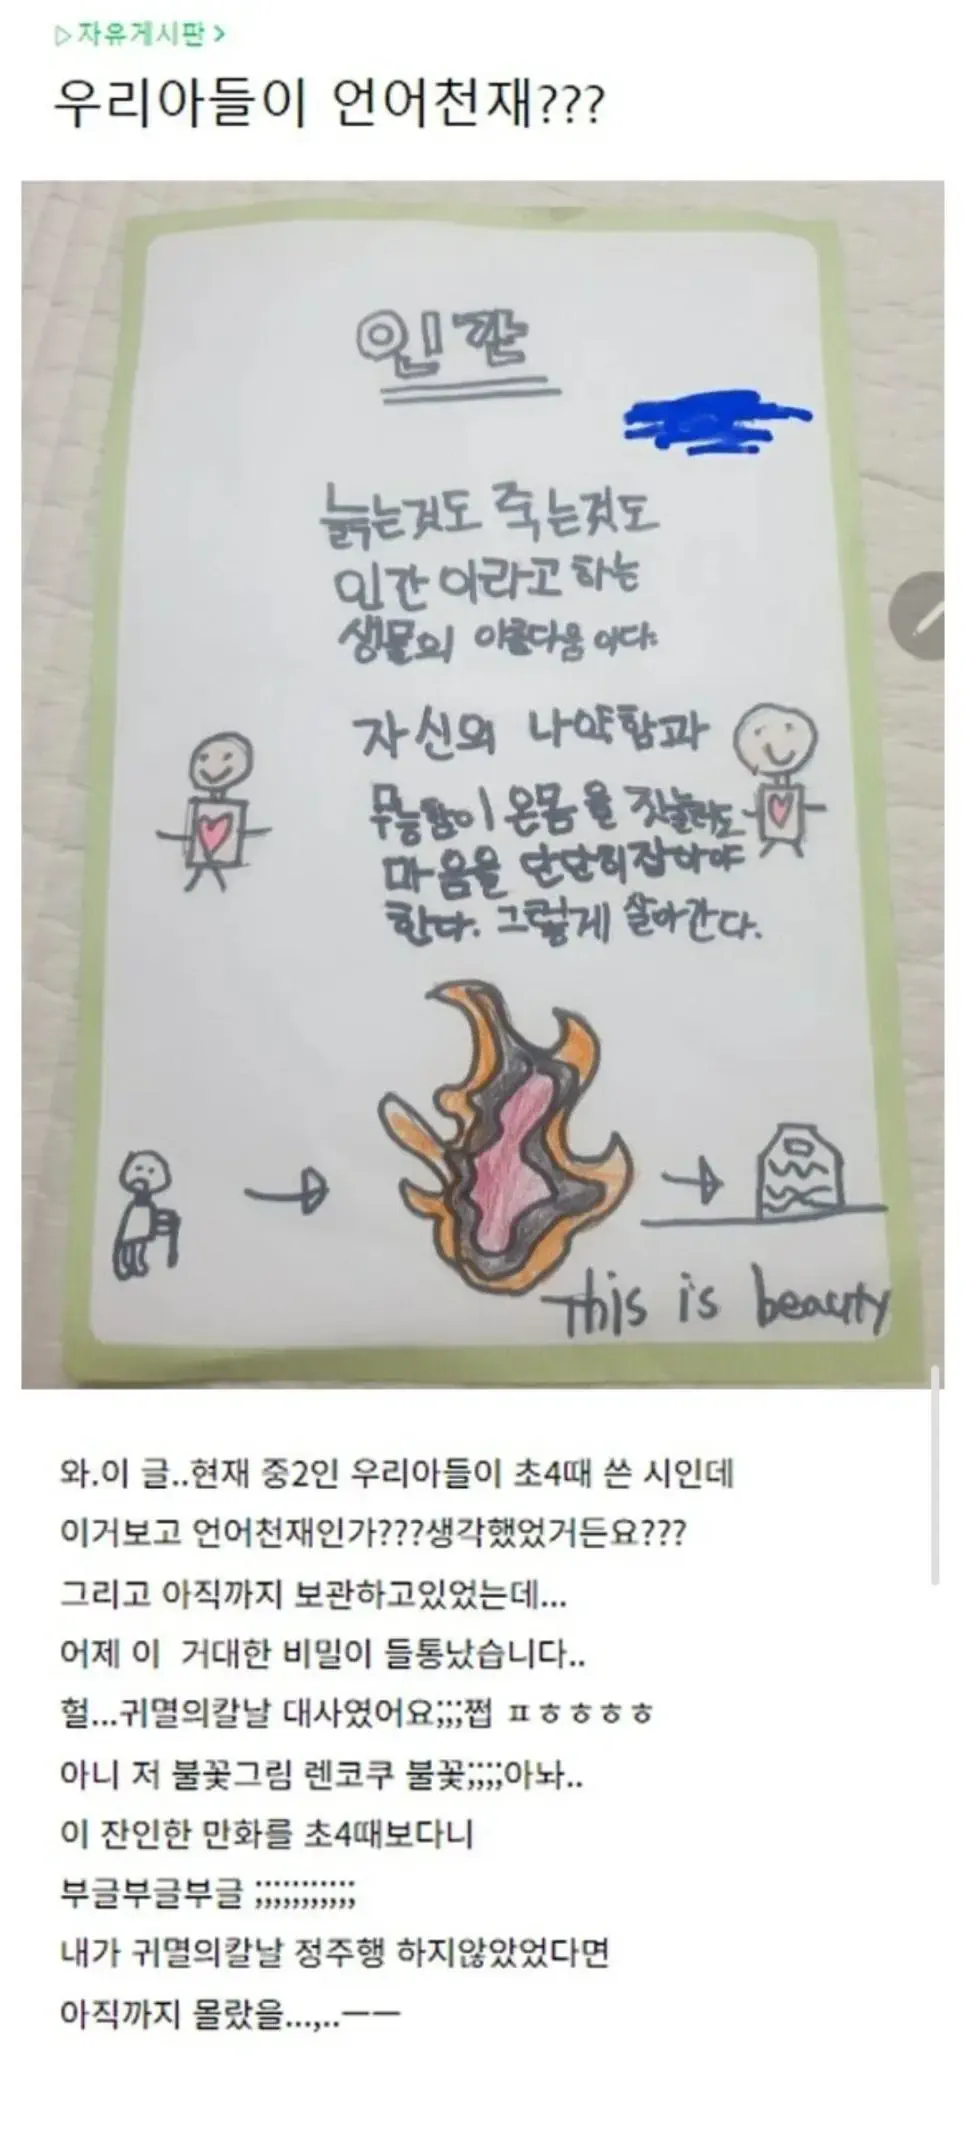 ▷자유게시판 >
우리아들이 언어천재???
인간
늙는것도 죽는것도
인간 이라고 하는
생물의 아름다움 이다.
자신의 나약함과
무능함이 온몸을 짓눌러도
마음을 단단히잡아야
한다. 그렇게 살아간다.
This is beauty
와.이 글..현재 중2인 우리아들이 초4때 쓴 시인데
이거보고 언어천재인가???생각했었거든요???
그리고 아직까지 보관하고있었는데...
어제 이 거대한 비밀이 들통났습니다..
헐...귀멸의칼날 대사였어요;;;쩝 ㅍㅎㅎㅎㅎ
아니 저 불꽃그림 렌코쿠 불꽃;;;;아놔..
이 잔인한 만화를 초4때보다니
부글부글부글 ;;;;;;;;;;;
내가 귀멸의칼날 정주행 하지않았었다면
아직까지 몰랐을...,..ㅡㅡ